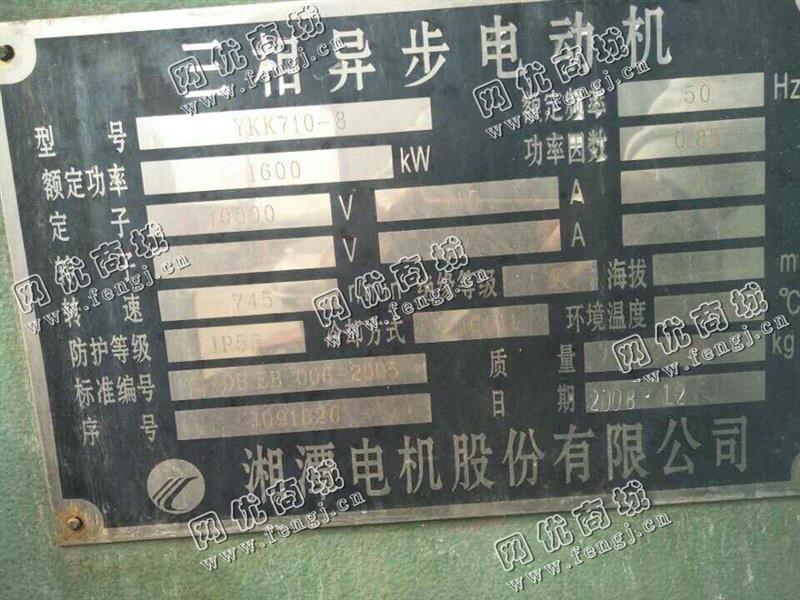 三相异步电动机
型 号 YKK710-8 额定频率 50 Hz
额定功率 1600 kW 功率因数 0.85
定 子 10000 V A
转 子 V A
转 速 745 绝缘等级 海拔 m
防护等级 IP55 冷却方式 环境温度 ℃
标准编号 EB 006-2005 质 量 kg
序 号 日 期 2008.12
湘潭电机股份有限公司
网优商城
www.fengj.cn
网优商城
www.fengj.cn
网优商城
www.fengj.cn
网优商城
www.fengj.cn
网优商城
www.fengj.cn
网优商城
www.fengj.cn
网优商城
www.fengj.cn
网优商城
www.fengj.cn